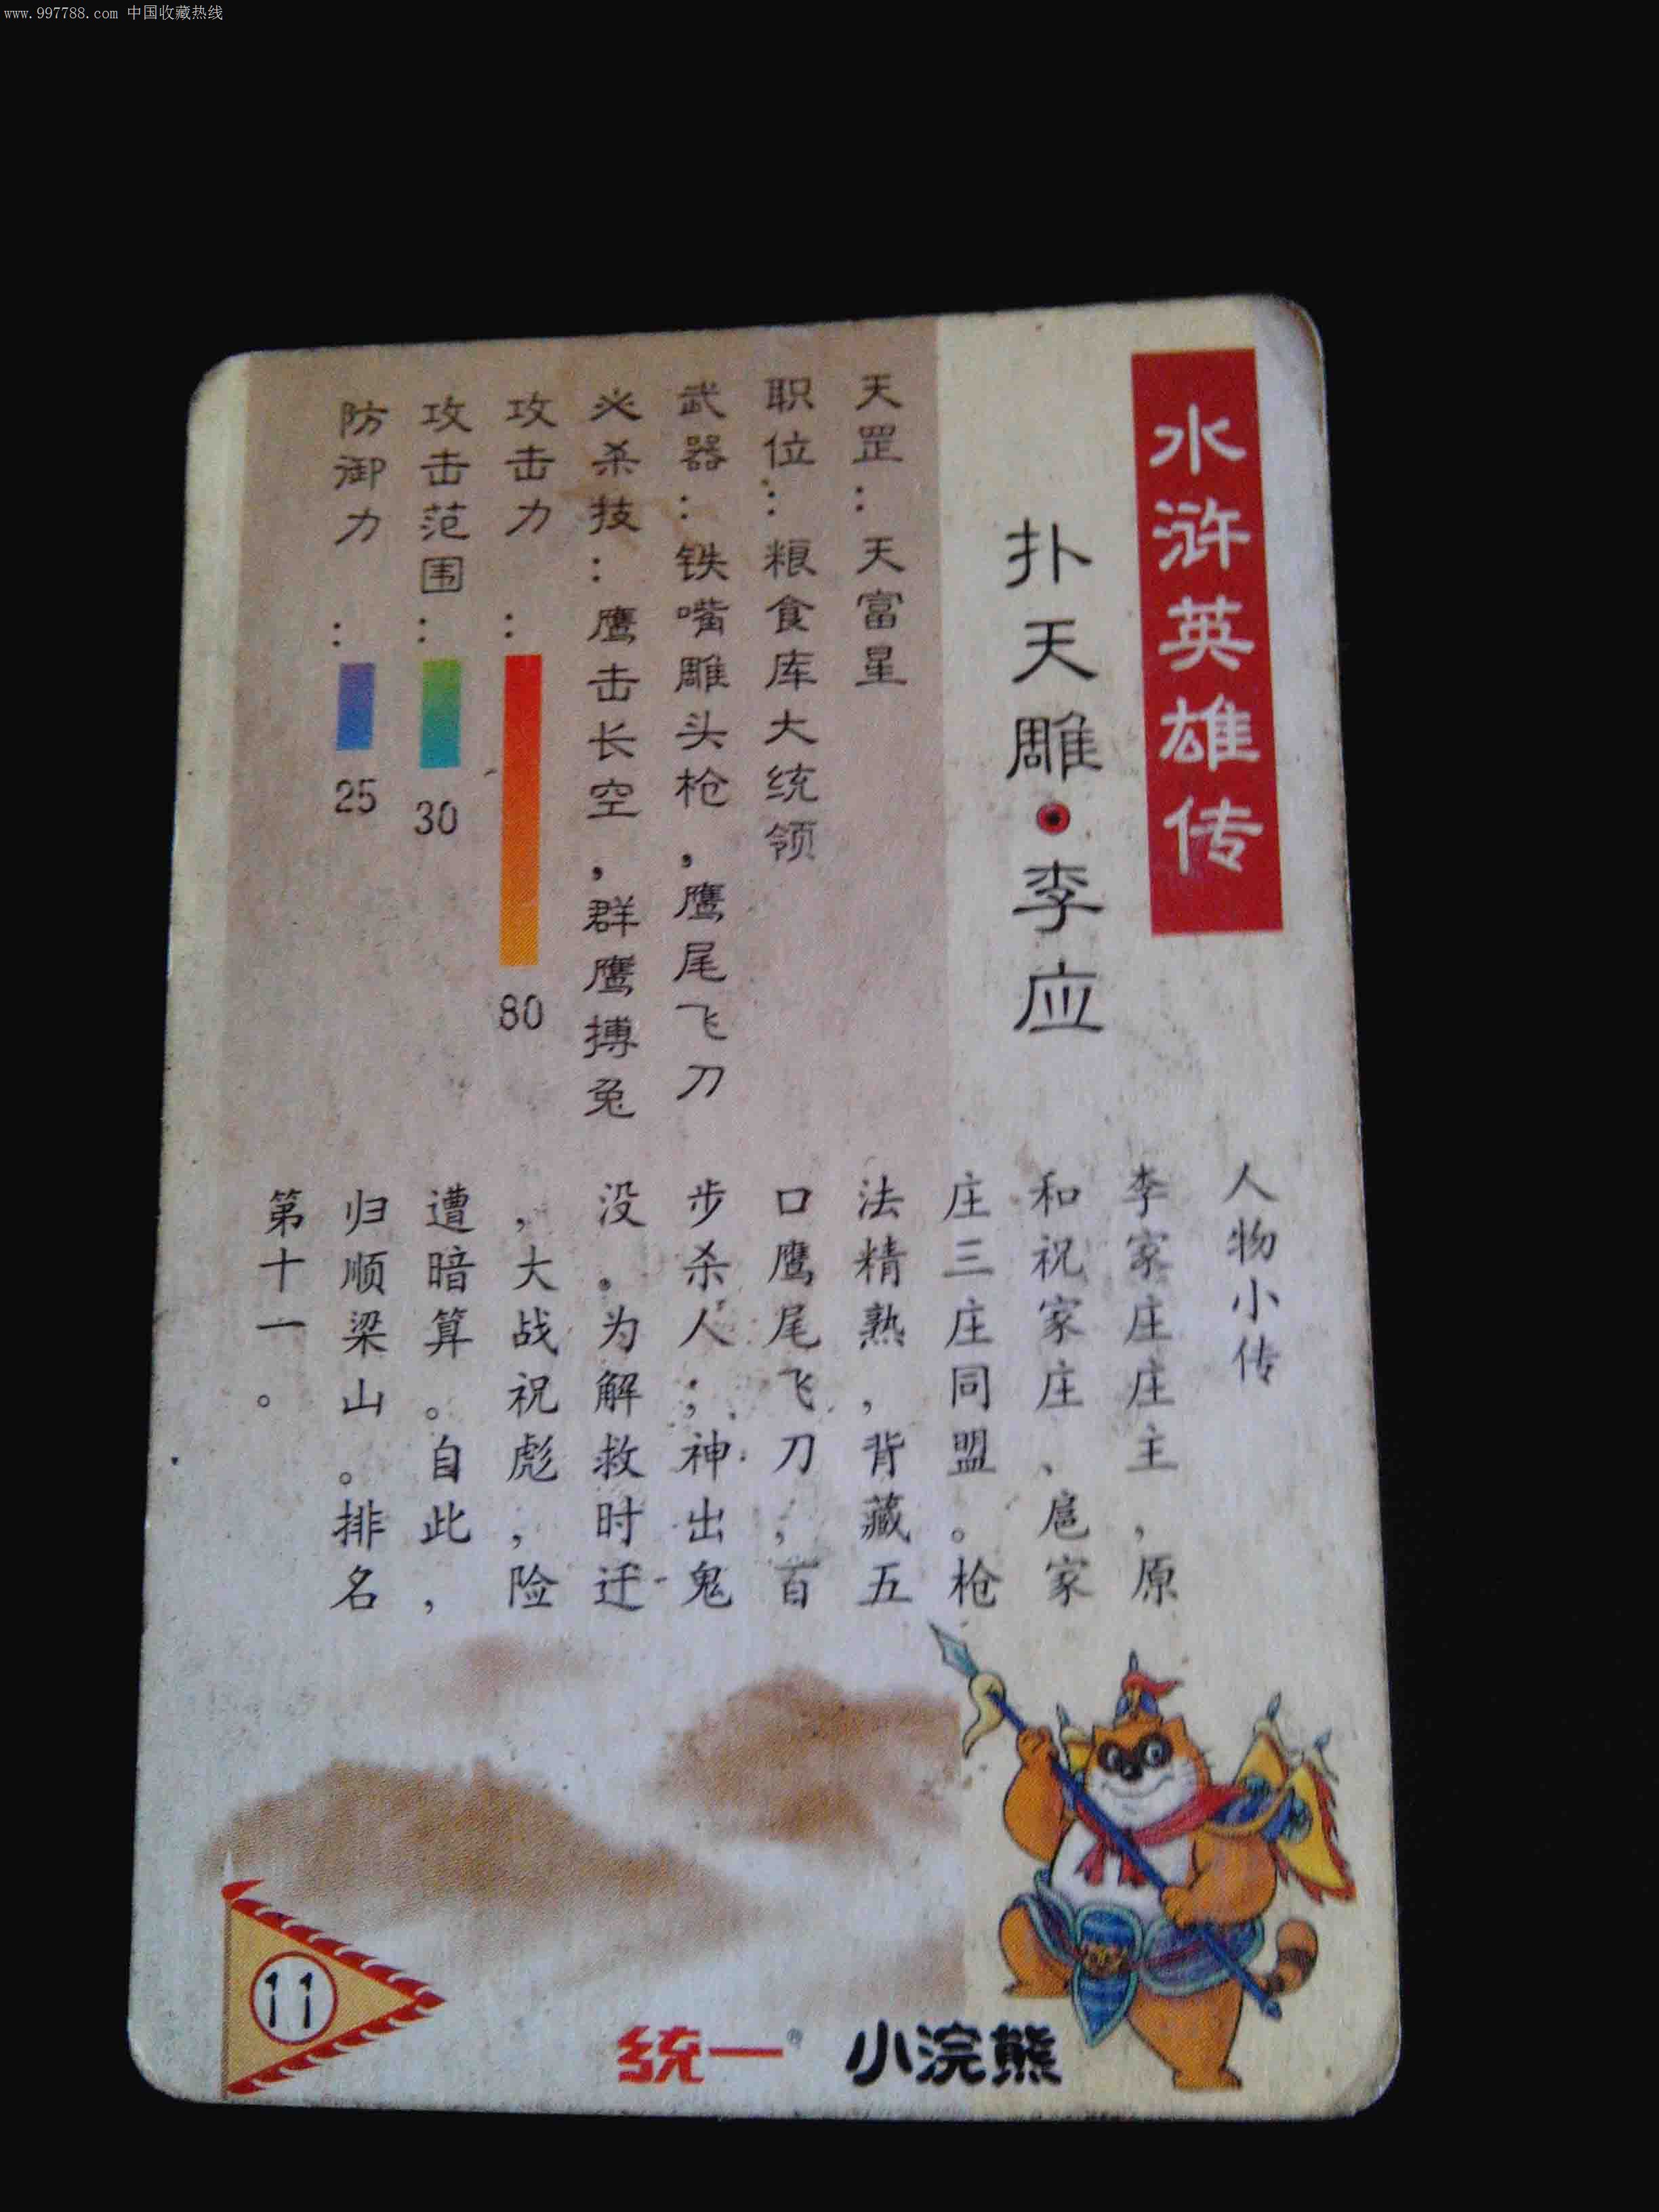 www.997788.com 中国收藏热线
水浒英雄传
扑天雕·李应
天罡：天富星
职位：粮食库大统领
武器：铁嘴雕头枪，鹰尾飞刀
必杀技：鹰击长空，群鹰搏兔
攻击力：80
攻击范围：30
防御力：25
人物小传
李家庄庄主，原
和祝家庄、扈家
庄三庄同盟。枪
法精熟，背藏五
口鹰尾飞刀，百
步杀人；神出鬼
没。为解救时迁
，大战祝彪，险
遭暗算。自此，
归顺梁山。排名
第十一。
11
统一® 小浣熊